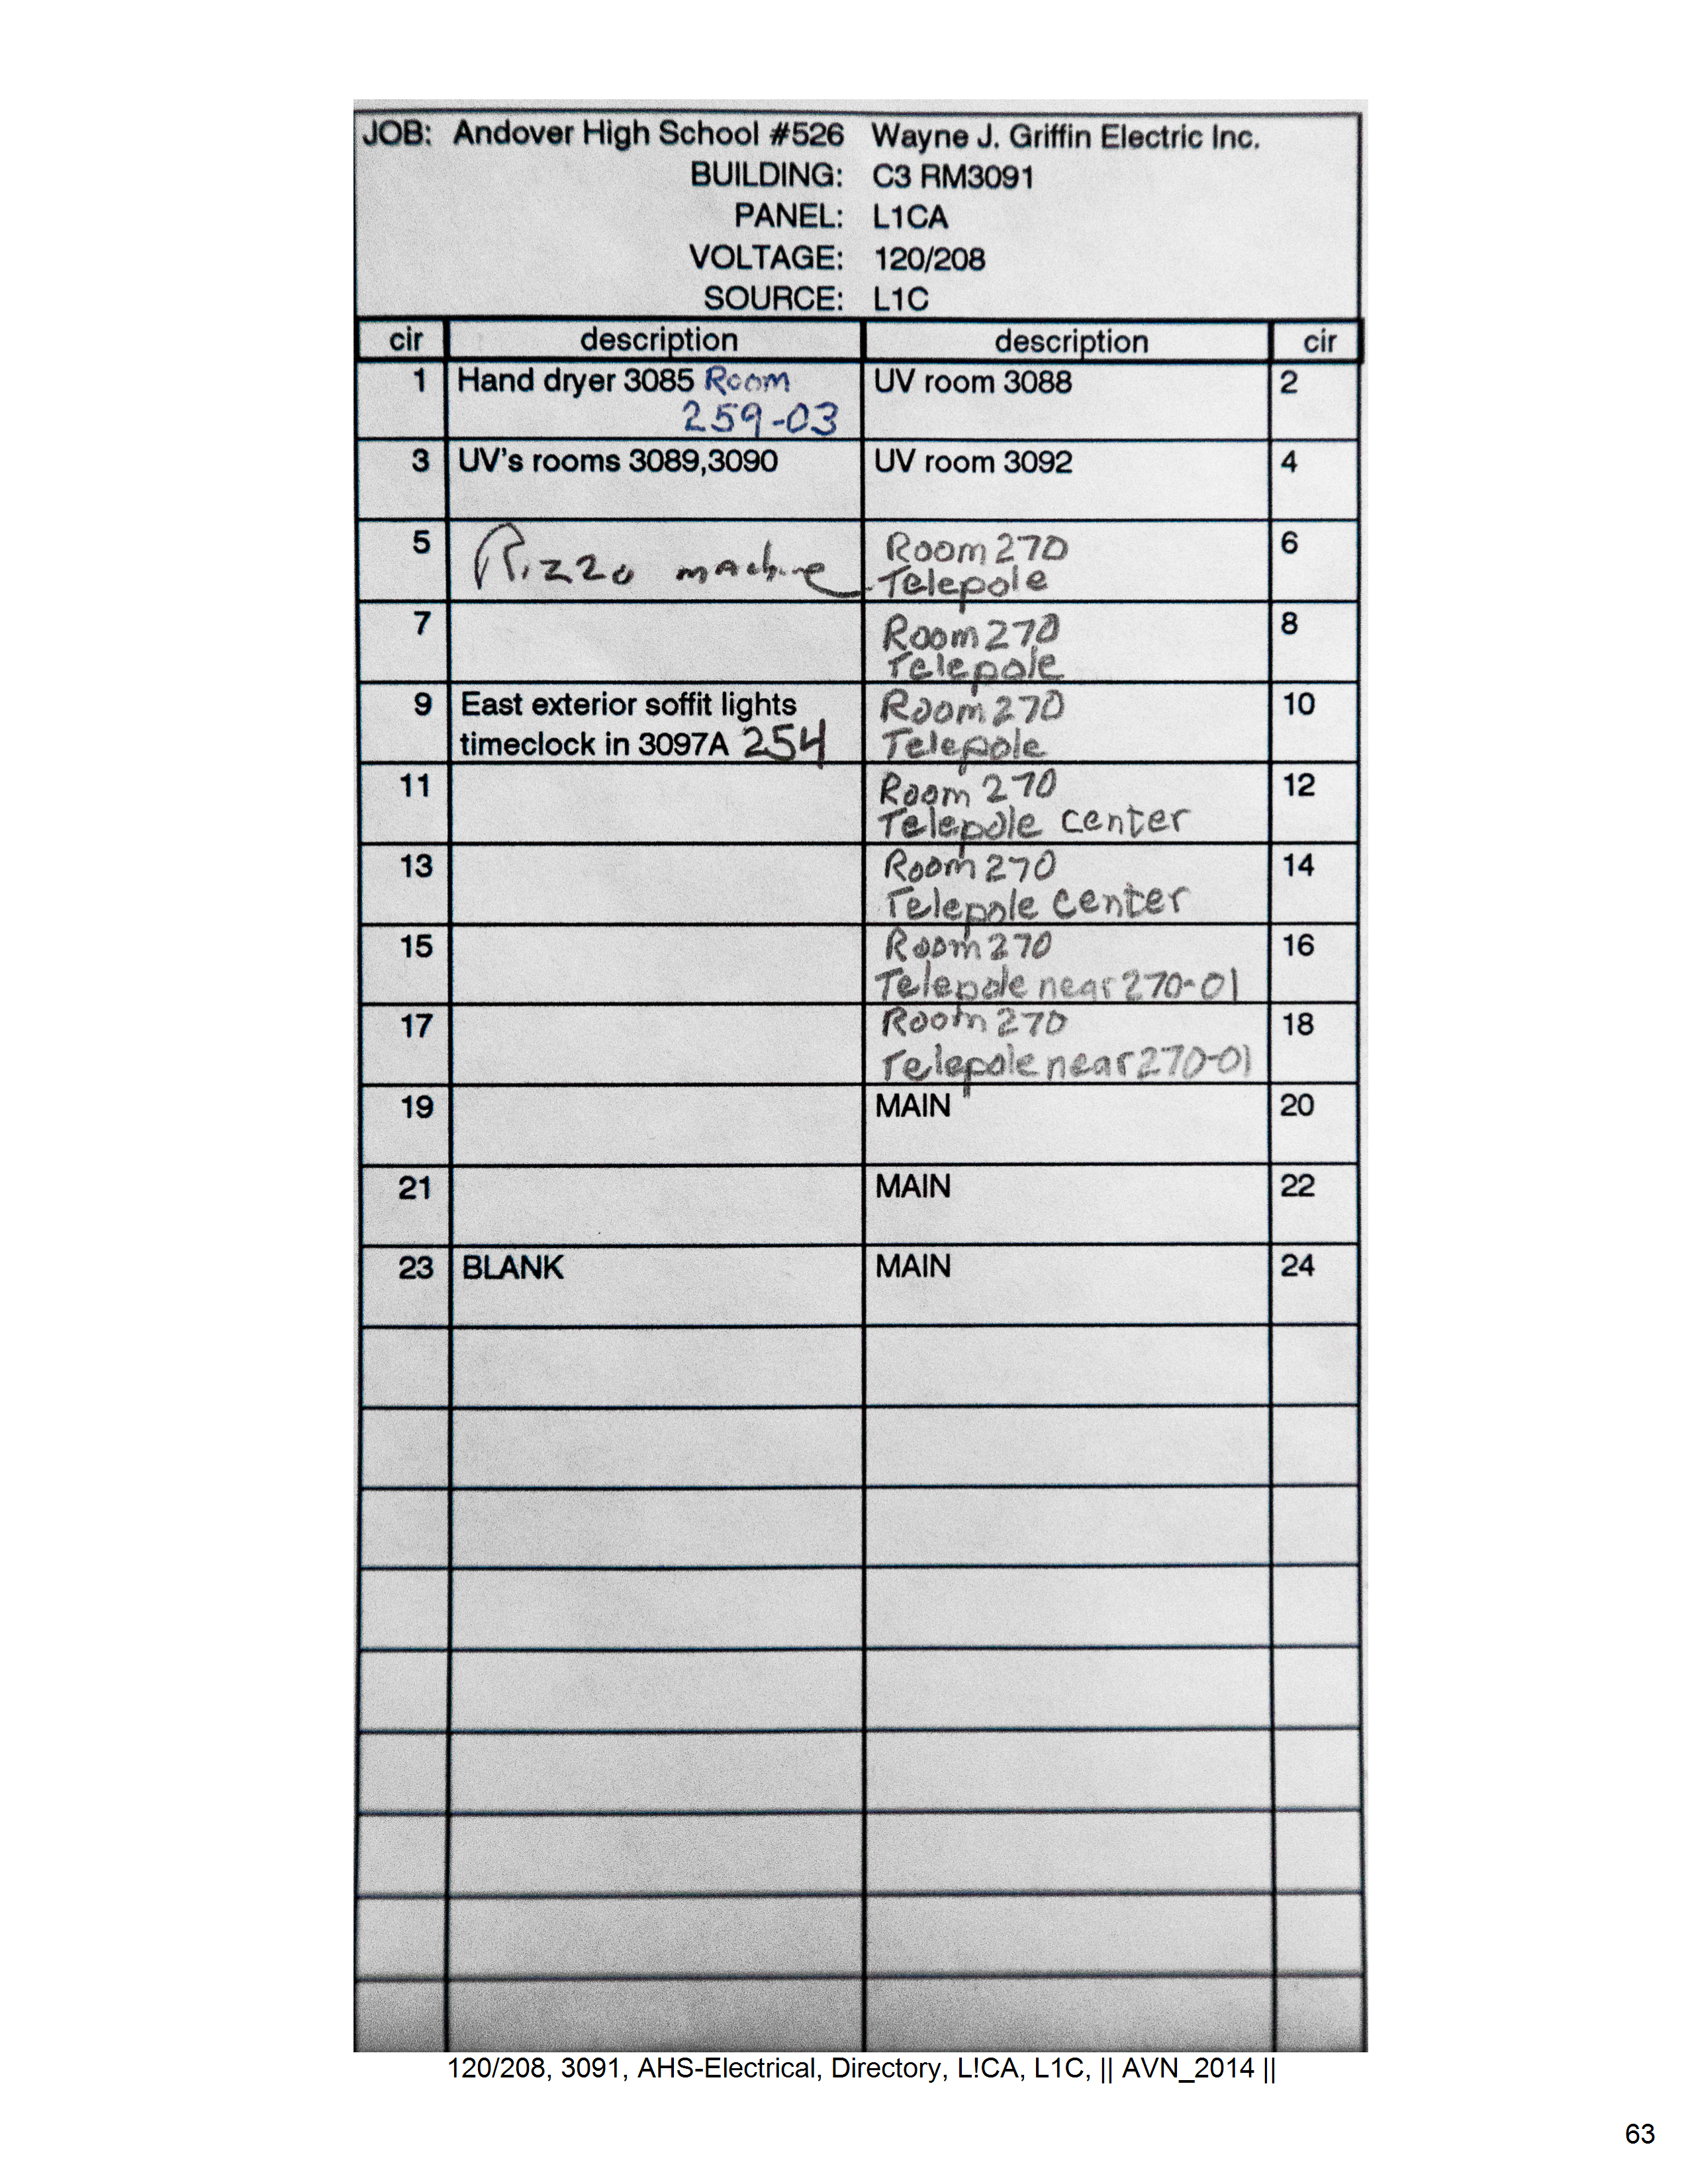 JOB: Andover High School #526 Wayne J. Griffin Electric Inc.
BUILDING: C3 RM3091
PANEL: L1CA
VOLTAGE: 120/208
SOURCE: L1C
cir description description cir
1 Hand dryer 3085 Room UV room 3088 2
259-03
3 UV's rooms 3089,3090 UV room 3092 4
5 Rizzo machine Room 270 6
Telepole
7 Room 270 8
Telepole
9 East exterior soffit lights Room 270 10
timeclock in 3097A 254 Telepole
11 Room 270 12
Telepole center
13 Room 270 14
Telepole center
15 Room 270 16
Telepole near 270-01
17 Room 270 18
Telepole near 270-01
19 MAIN 20
21 MAIN 22
23 BLANK MAIN 24
120/208, 3091, AHS-Electrical, Directory, L!CA, L1C, || AVN_2014 ||
63